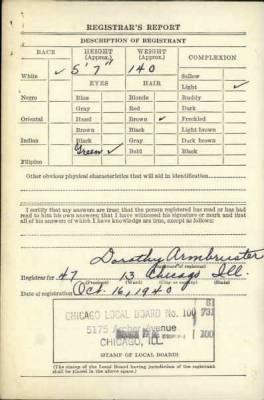 REGISTRAR'S REPORT
DESCRIPTION OF REGISTRANT
RACE HEIGHT (Approx.) WEIGHT (Approx.) COMPLEXION
5' 7" 140
White ✓ Sallow
EYES HAIR Light ✓
Negro Blue Blonde Ruddy
Gray Red Dark
Oriental Hazel Brown ✓ Freckled
Brown Black Light brown
Indian Black Gray Dark brown
Green ✓ Bald Black
Filipino
Other obvious physical characteristics that will aid in identification
I certify that my answers are true; that the person registered has read or has had
read to him his own answers; that I have witnessed his signature or mark and that
all of his answers of which I have knowledge are true, except as follows:
Dorothy Armbruster
(Signature of registrar)
Registrar for 47 13 Chicago Ill.
(Precinct) (Ward) (City or county) (State)
Date of registration Oct. 16, 1940
CHICAGO LOCAL BOARD No. 100
5175 Archer Avenue
CHICAGO, ILL.
(STAMP OF LOCAL BOARD)
(The stamp of the Local Board having jurisdiction of the registrant
shall be placed in the above space.)